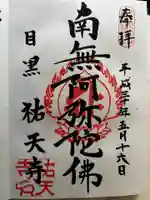 奉拝
平成三十年五月十六日
南無阿弥陀佛
目黒
祐天寺